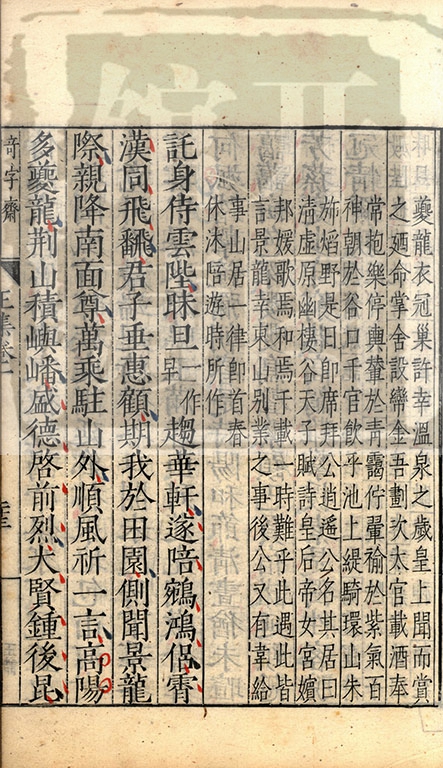 夔龍衣冠巢許幸溫泉之歲皇上聞而賞
之廼命掌舍設帟金吾劃次太官載酒奉
常抱樂停輿輦於青靄佇翬褕於紫氣百
神朝於谷口千官飲乎池上緹騎環山朱
斾焰野是日卽席拜公逍遙公名其居曰
清虛原幽棲谷天子賦詩皇后帝女宮嬪
邦媛歌焉和焉千載一時難乎此遇此皆
言景龍幸東山別業之事後公又有韋給
事山居一律卽首春
休沐陪遊時所作
託身侍雲陛昧旦一作早趨華軒遂陪鵷鴻侶霄
漢同飛翻君子垂惠顧期我於田園側聞景龍
際親降南面尊萬乘駐山外順風祈一言高陽
多夔龍荆山積嶼嶓盛德啓前烈大賢鍾後昆
奇字齋